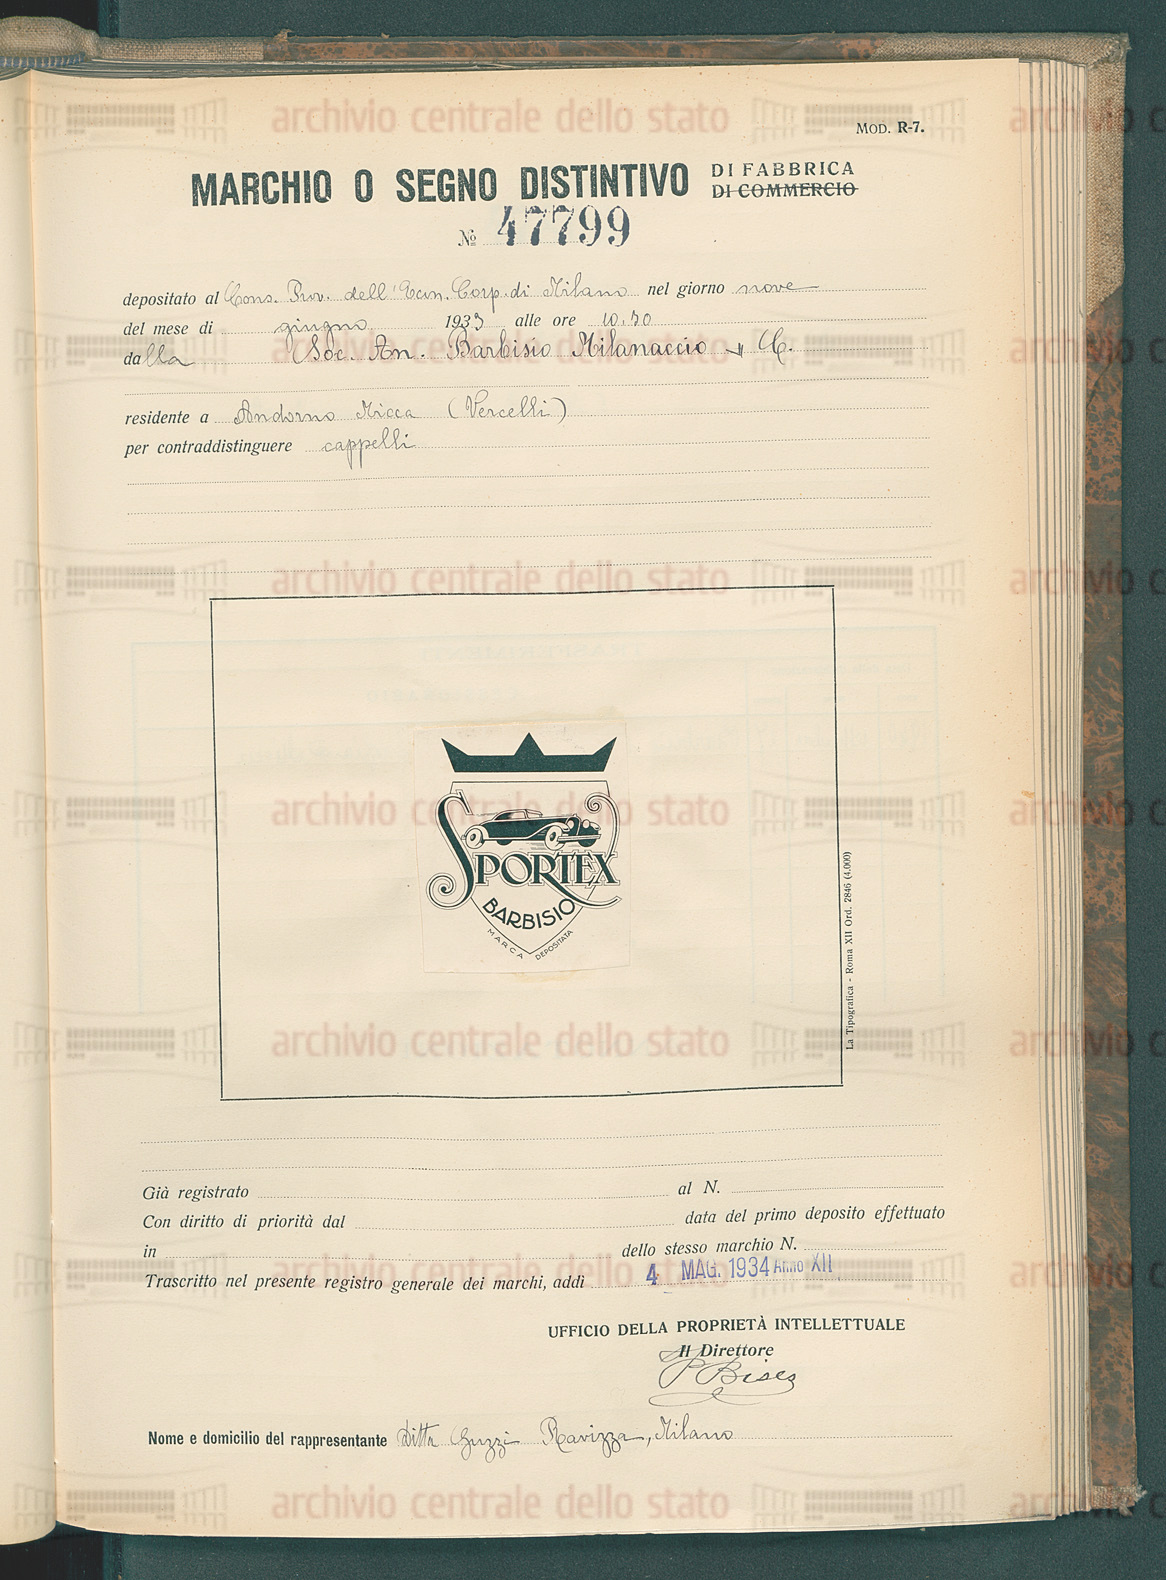 MOD. R-7.
MARCHIO O SEGNO DISTINTIVO DI FABBRICA
DI COMMERCIO
No 47799
depositato al Cons. Prov. dell'Econ. Corp. di Milano nel giorno nove
del mese di giugno 1933 alle ore 10.30
dalla Soc. An. Barbisio Milanaccio & C.
residente a Andorno Micca (Vercelli)
per contraddistinguere cappelli
SPORTEX
BARBISIO
MARCA DEPOSITATA
La Tipografica - Roma XII Ord. 2846 (4.000)
Già registrato al N.
Con diritto di priorità dal data del primo deposito effettuato
in dello stesso marchio N.
Trascritto nel presente registro generale dei marchi, addì 4 MAG. 1934 Anno XII
UFFICIO DELLA PROPRIETÀ INTELLETTUALE
Il Direttore
Nome e domicilio del rappresentante Ditta Guzzi Ravizza, Milano
archivio centrale dello stato
archivio centrale dello stato
archivio centrale dello stato
archivio centrale dello stato
archivio centrale dello stato
archivio centrale dello stato
archivio centrale dello stato